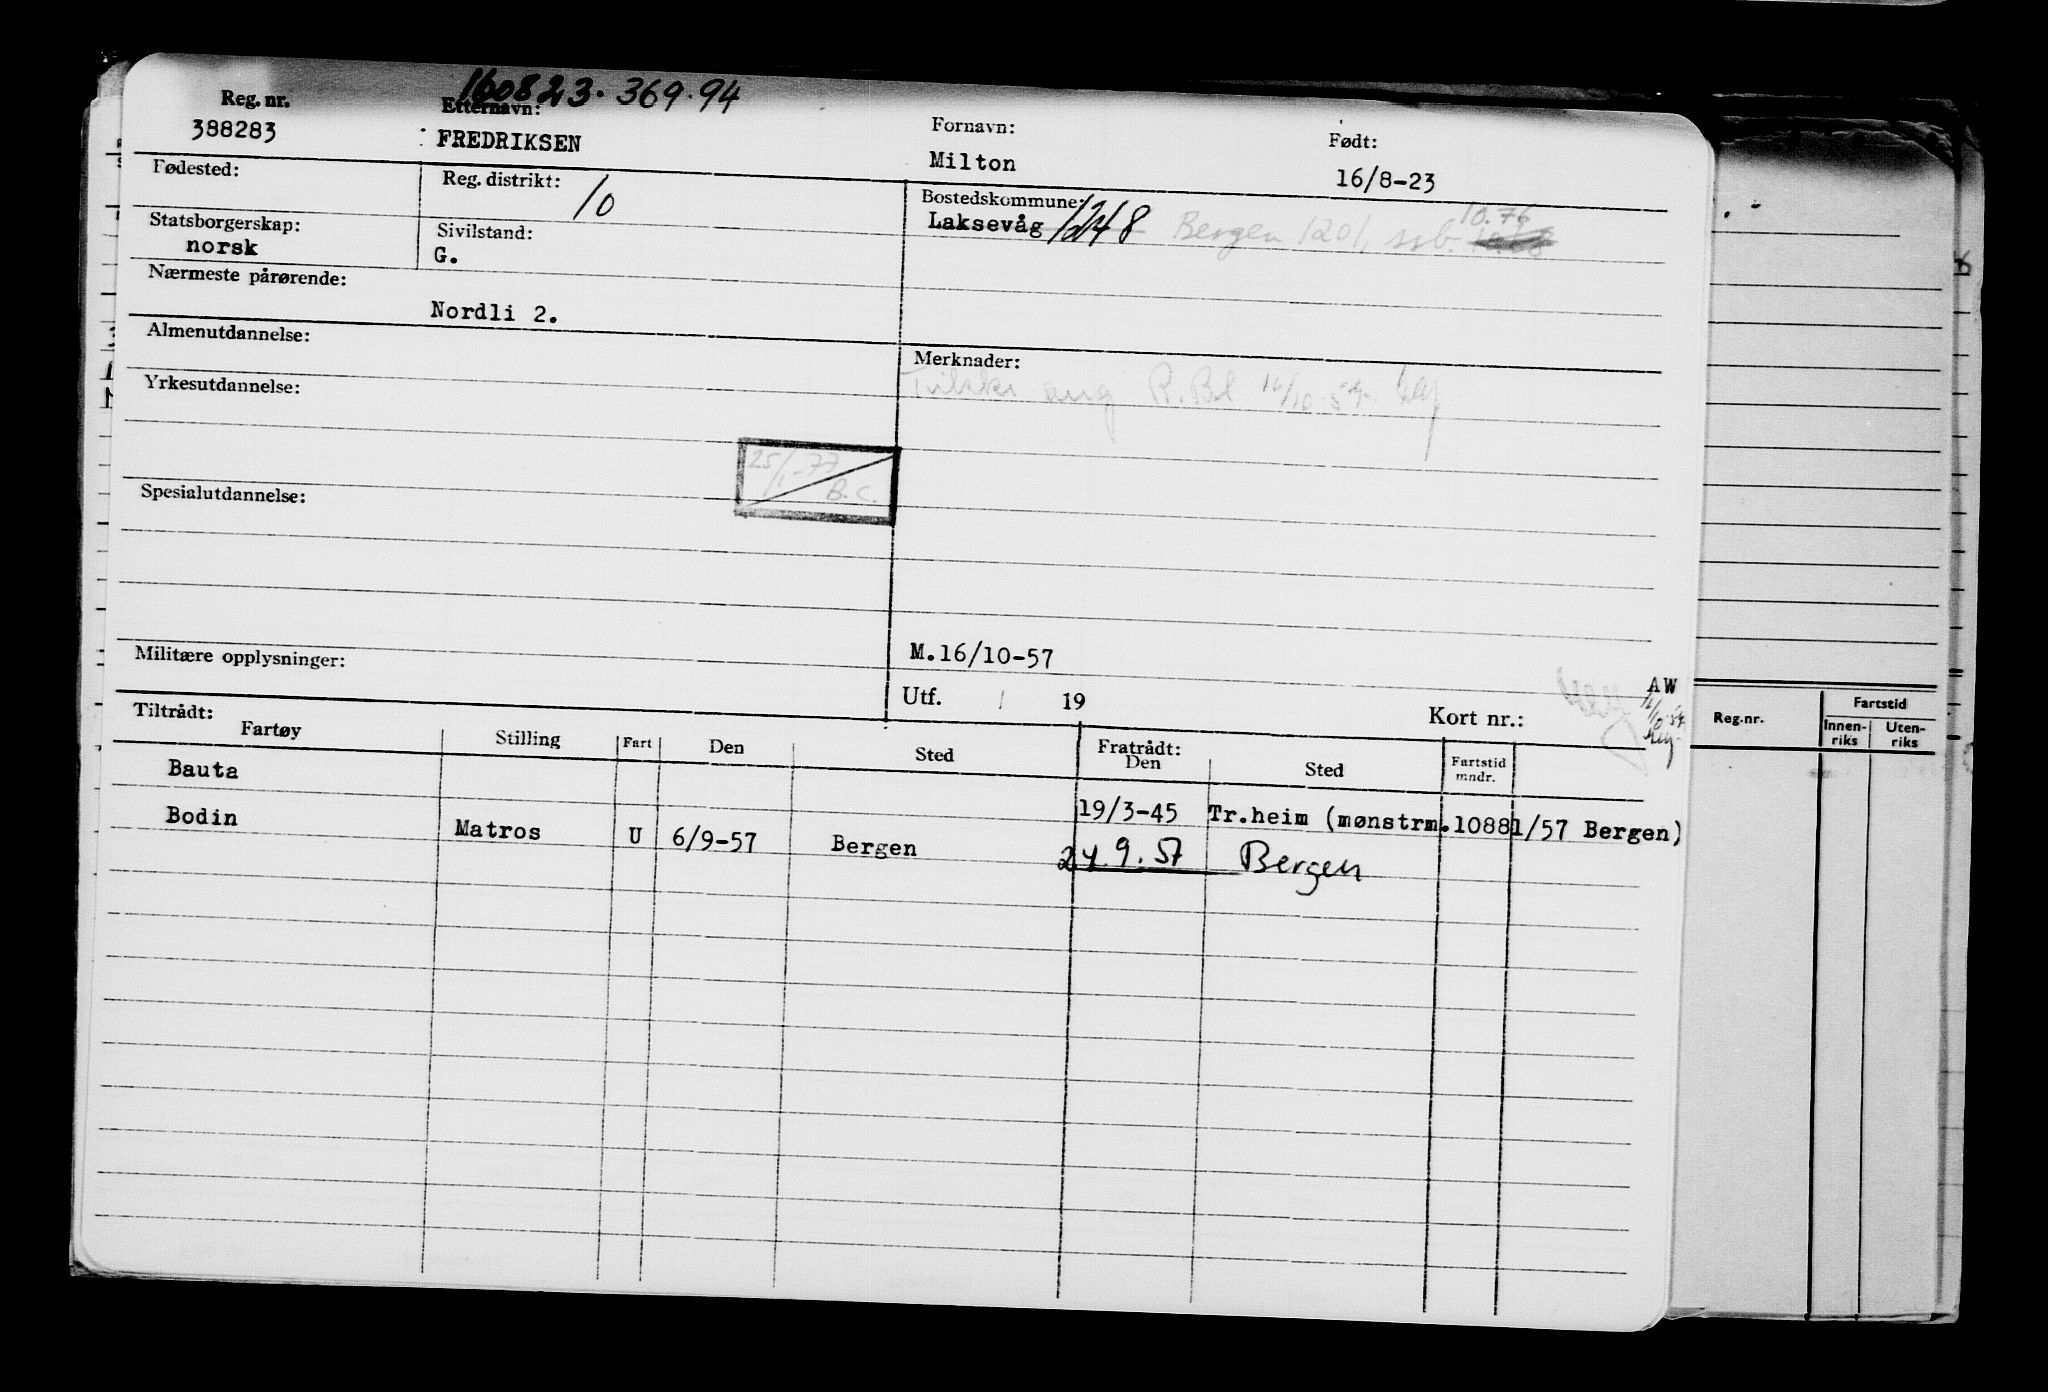 160823·369·94
Reg. nr. Etternavn: Fornavn: Født:
388283 FREDRIKSEN Milton 16/8-23
Fødested: Reg. distrikt: 10 Bostedskommune:
Laksevåg 1248 Bergen 1201, ssb. 10.76
Statsborgerskap: Sivilstand:
norsk G.
Nærmeste pårørende:
Nordli 2.
Almenutdannelse: Merknader:
ang R.Bl 16/10-57
Yrkesutdannelse:
25/1-77
B.C.
Spesialutdannelse:
M.16/10-57
Militære opplysninger:
AW
Utf. / 19 Kort nr.:
16/10-57
Tiltrådt: Fratrådt:
Fartøy Stilling Fart Den Sted Den Sted Fartstid mndr.
Bauta 19/3-45 Tr.heim (mønstrm.10881/57 Bergen)
Bodin Matros U 6/9-57 Bergen 24.9.57 Bergen
Reg.nr. Fartstid
Innen-riks Uten-riks